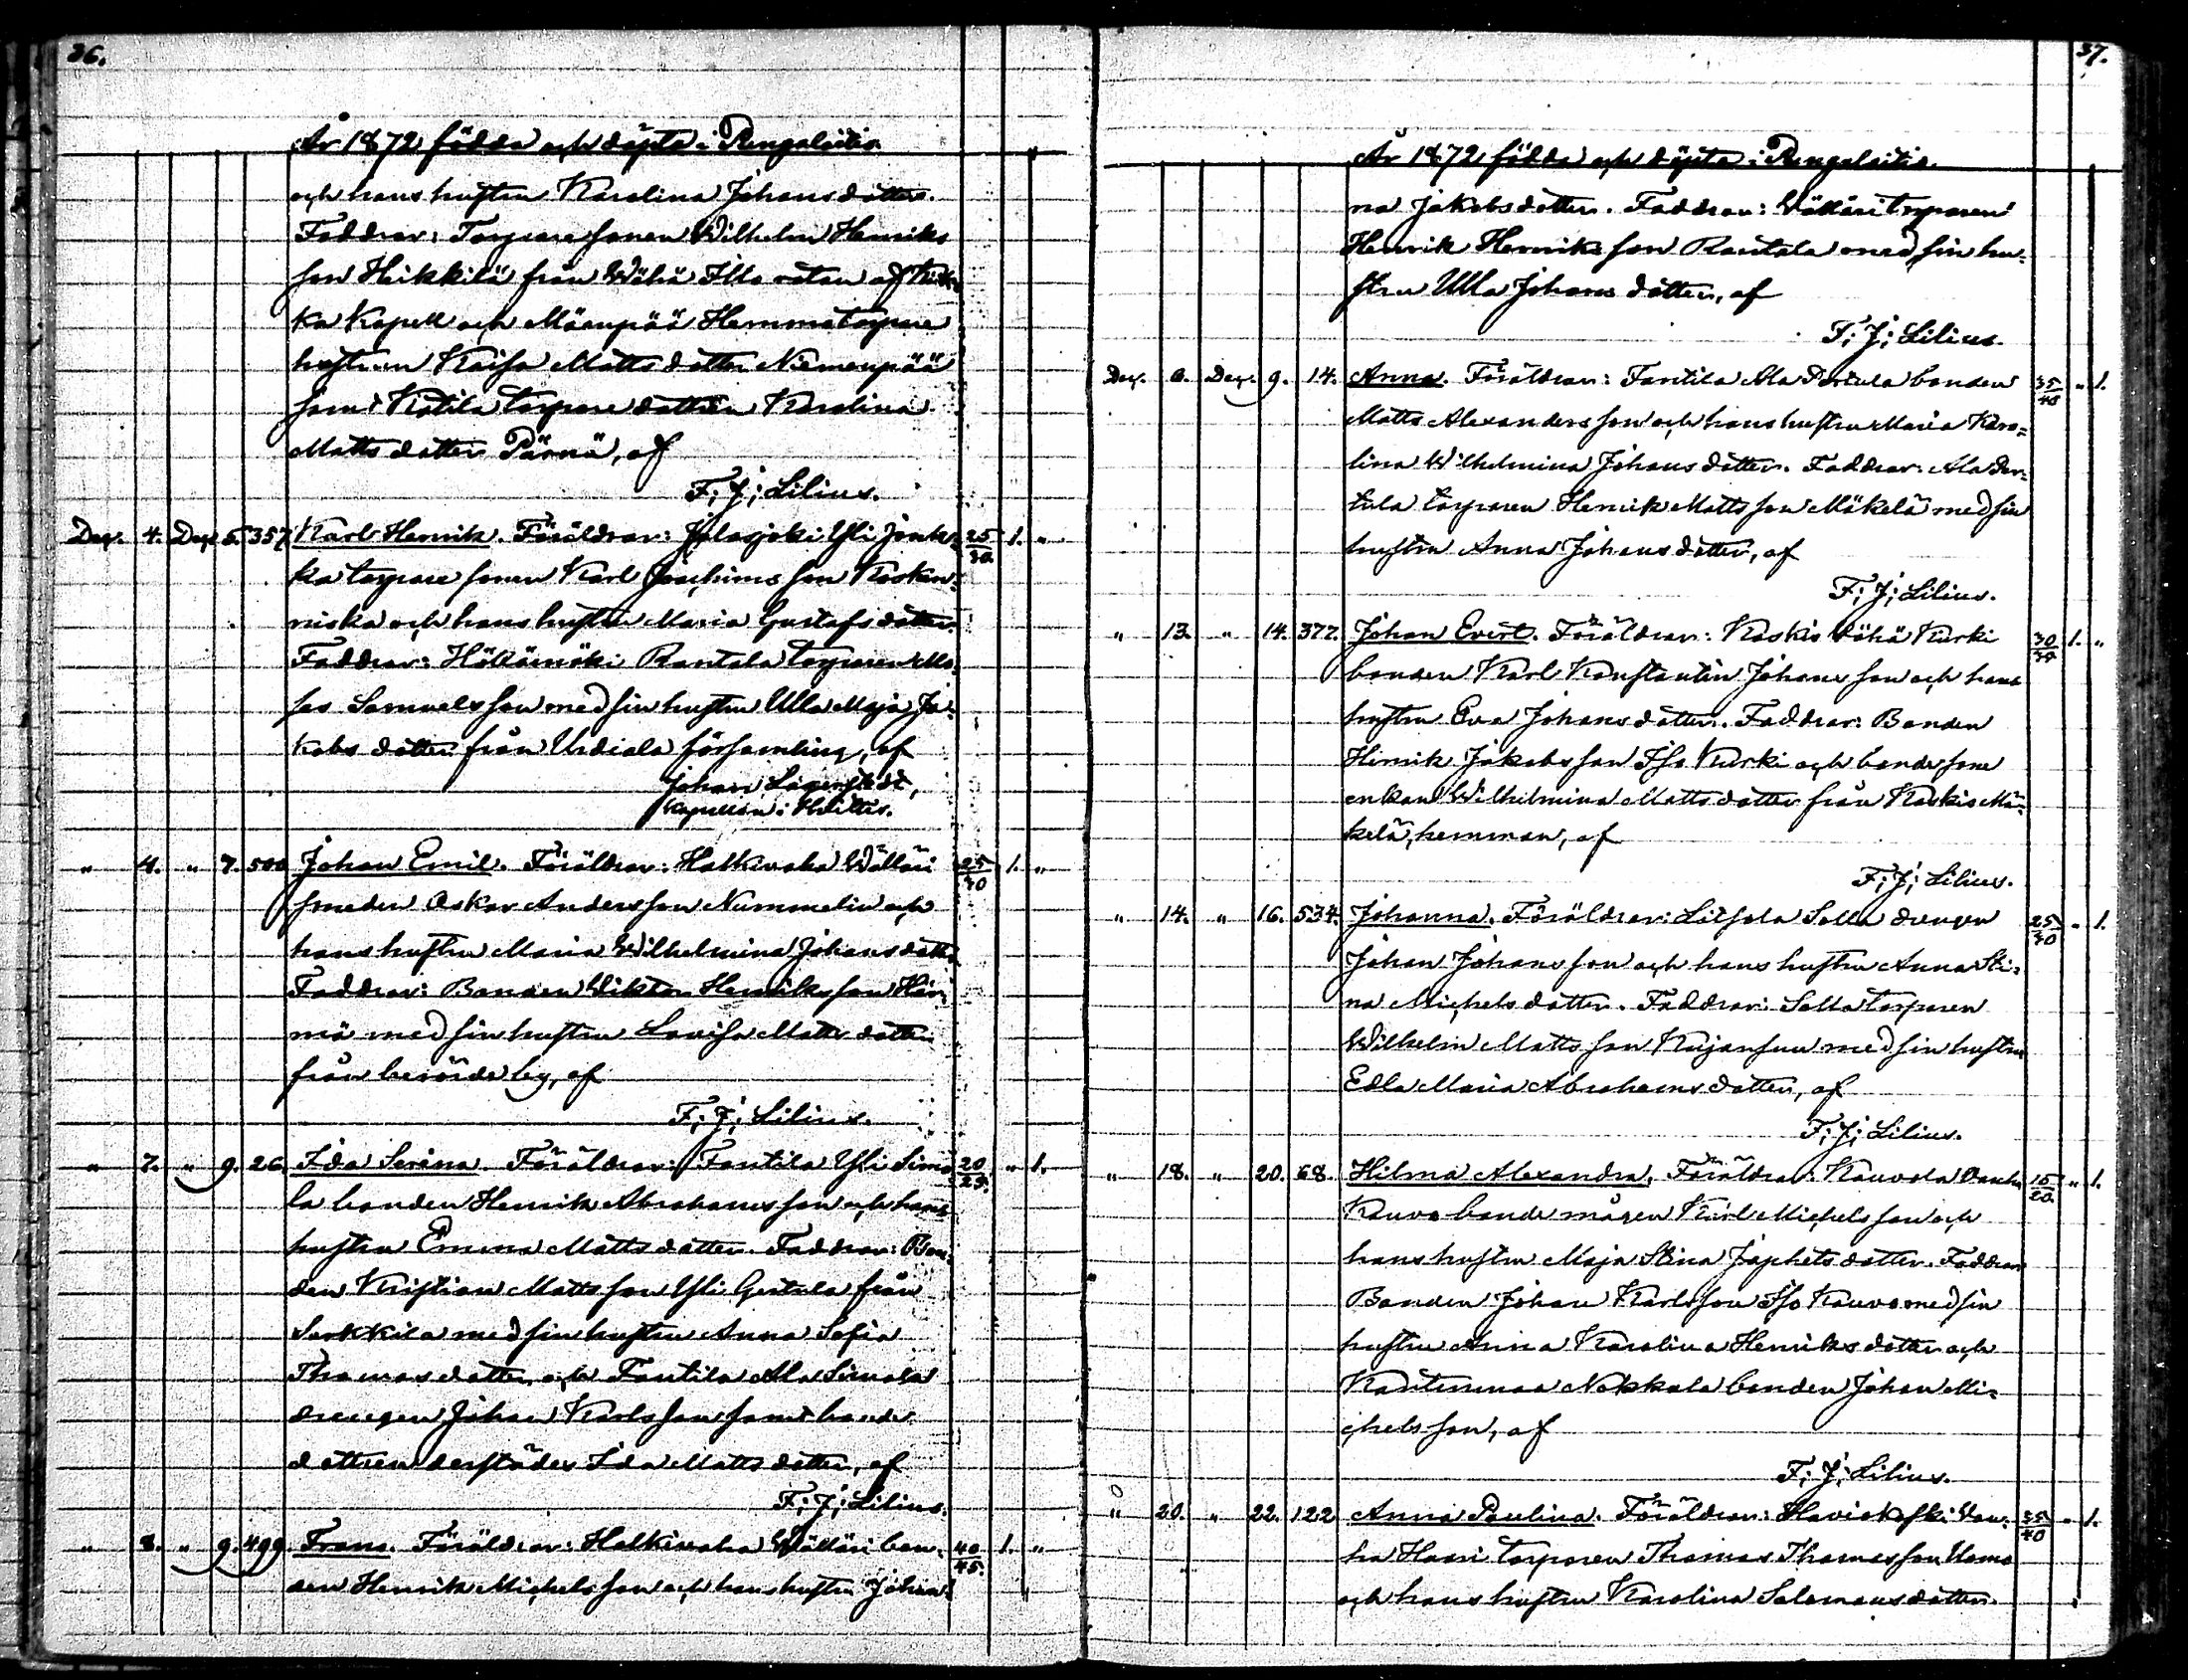 36.
År 1872 födda och döpta i Pungalaitio.
och hans hustru Karolina Johansdotter.
Faddrar: Torparesonen Wilhelm Henriks
son Heikkilä från Wähä Iso rotan af Kiik-
ka Kapell och Mäenpää Hemmatorpare
hustrun Kaisa Mattsdotter Niemenpää
samt Kotila torparedottren Karolina
Mattsdotter Pärnä, af
F. J. Lilius.
Dec. 4. Dec. 5. 357. Karl Henrik. Föräldrar: Jalasjoki Yli Jonk- 25/30 1. "
ka torparesonen Karl Joachimsson Kosken-
niska och hans hustru Maria Gustafsdotter.
Faddrar: Höltämäki Rantala torparen Mo-
ses Samuelsson med sin hustru Ulla Maja Ja-
kobsdotter från Urdiala församling, af
Johan Lagerstedt,
Kapellan i Hvittis.
" 4. " 7. 500. Johan Emil. Föräldrar: Halkivaha Wälläri 25/30 1. "
smeden Oskar Andersson Nummelin och
hans hustru Maria Wilhelmina Johansdotter.
Faddrar: Bonden Wiktor Henriksson Här-
mä med sin hustru Lovisa Mattsdotter
från berörde by, af
F. J. Lilius.
" 7. " 9. 26. Ida Serina. Föräldrar: Fantila Yli Simo- 20/25. " 1.
la bonden Henrik Abrahamsson och hans
hustru Emma Mattsdotter. Faddrar: Bon-
den Kristian Mattsson Yli Gertala från
Sarkkila med sin hustru Anna Sofia
Thomasdotter, och Fantila Ala Simola
drengen Johan Karlsson samt bonde
dottren derstädes Ida Mattsdotter, af
F. J. Lilius.
" 8. " 9. 499. Frans. Föräldrar: Halkivaha Wälläri bon- 40/45. 1. "
den Henrik Michelsson och hans hustru Johan-
37.
År 1872 födda och döpta i Pungalaitio.
na Jakobsdotter. Faddrar: Wälläri torparen
Henrik Henriksson Rantala med sin hu-
stru Ulla Johansdotter, af
F. J. Lilius.
Dec. 6. Dec. 9. 14. Anna. Föräldrar: Fantila Ala Pertula bonden 35/40 " 1.
Matts Alexandersson och hans hustru Maria Karo-
lina Wilhelmina Johansdotter. Faddrar: Ala Per-
tula torparen Henrik Mattsson Mäkelä med sin
hustru Anna Johansdotter, af
F. J. Lilius.
" 13. " 14. 377. Johan Evert. Föräldrar: Koskis Wähä Kurki 30/30 1. "
bonden Karl Konstantin Johansson och hans
hustru Eva Johansdotter. Faddrar: Bonden
Henrik Jakobsson Iso Kurki och bondesone
enkan Wilhelmina Mattsdotter från Koskis Mä-
kelä, hemman, af
F. J. Lilius.
" 14. " 16. 534. Johanna. Föräldrar: Liitsola Salla drengen 25/30 " 1.
Johan Johansson och hans hustru Anna Sti-
na Michelsdotter. Faddrar: Salla torparen
Wilhelm Mattsson Kujansuu med sin hustru
Edla Maria Abrahamsdotter, af
F. J. Lilius.
" 18. " 20. 68. Hilma Alexandra. Föräldrar: Kauvola Vanha 15/20. " 1.
Kauvo bondemågen Karl Michelsson och
hans hustru Maja Stina Japhetsdotter. Faddrar:
Bonden Johan Karlsson Iso Kauvo med sin
hustru Anna Karolina Henriksdotter och
Karitinmaa Nokkala bonden Johan Mi-
chelsson, af
F. J. Lilius.
" 20. " 22. 122 Anna Paulina. Föräldrar: Haviokoski Van- 35/40 " 1.
ha Haari torparen Thomas Thomasson Uamo
och hans hustru Karolina Salomonsdotter.